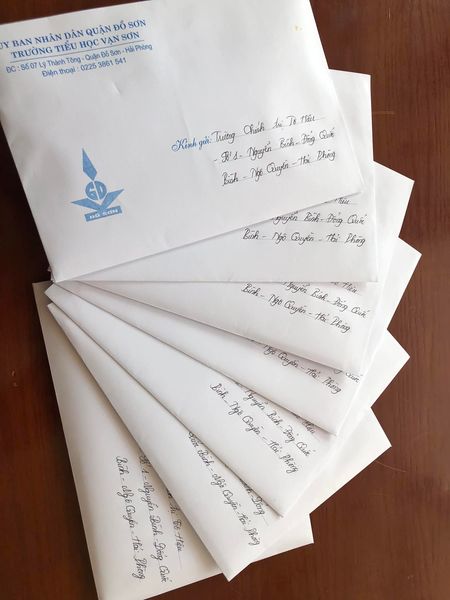 ỦY BAN NHÂN DÂN QUẬN ĐỒ SƠN
TRƯỜNG TIỂU HỌC VẠN SƠN
ĐC : Số 07 Lý Thánh Tông - Quận Đồ Sơn - Hải Phòng
Điện thoại : 0225 3861 541
Kính gửi: Trường Chính trị Tô Hiệu
- Số 1 - Nguyễn Bình - Đổng Quốc
Bình - Ngô Quyền - Hải Phòng
GD
ĐỒ SƠN
Hiệu
Nguyễn Bình - Đổng Quốc
Bình - Ngô Quyền - Hải Phòng
Nguyễn Bình Đổng Quốc
Bình - Ngô Quyền - Hải Phòng
Quốc
Bình - Ngô Quyền - Hải Phòng
Nguyễn Bình - Đổng Quốc
Bình - Ngô Quyền - Hải Phòng
Bình - Đổng
Bình - Ngô Quyền - Hải Phòng
Tô Hiệu
Số 1 - Nguyễn Bình - Đổng Quốc
Bình - Ngô Quyền - Hải Phòng